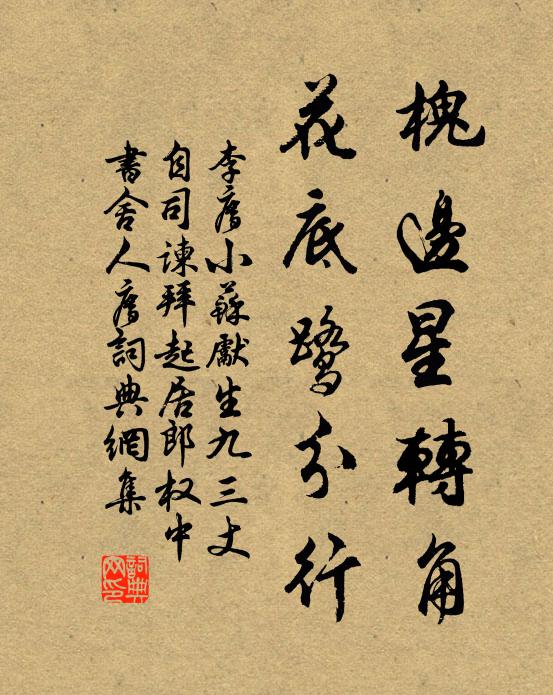 槐邊星轉角
花底鷺分行
李廌小蘇獻生九三丈
自司諫拜起居郎权中
書舍人廌詞典網集
詞典网印